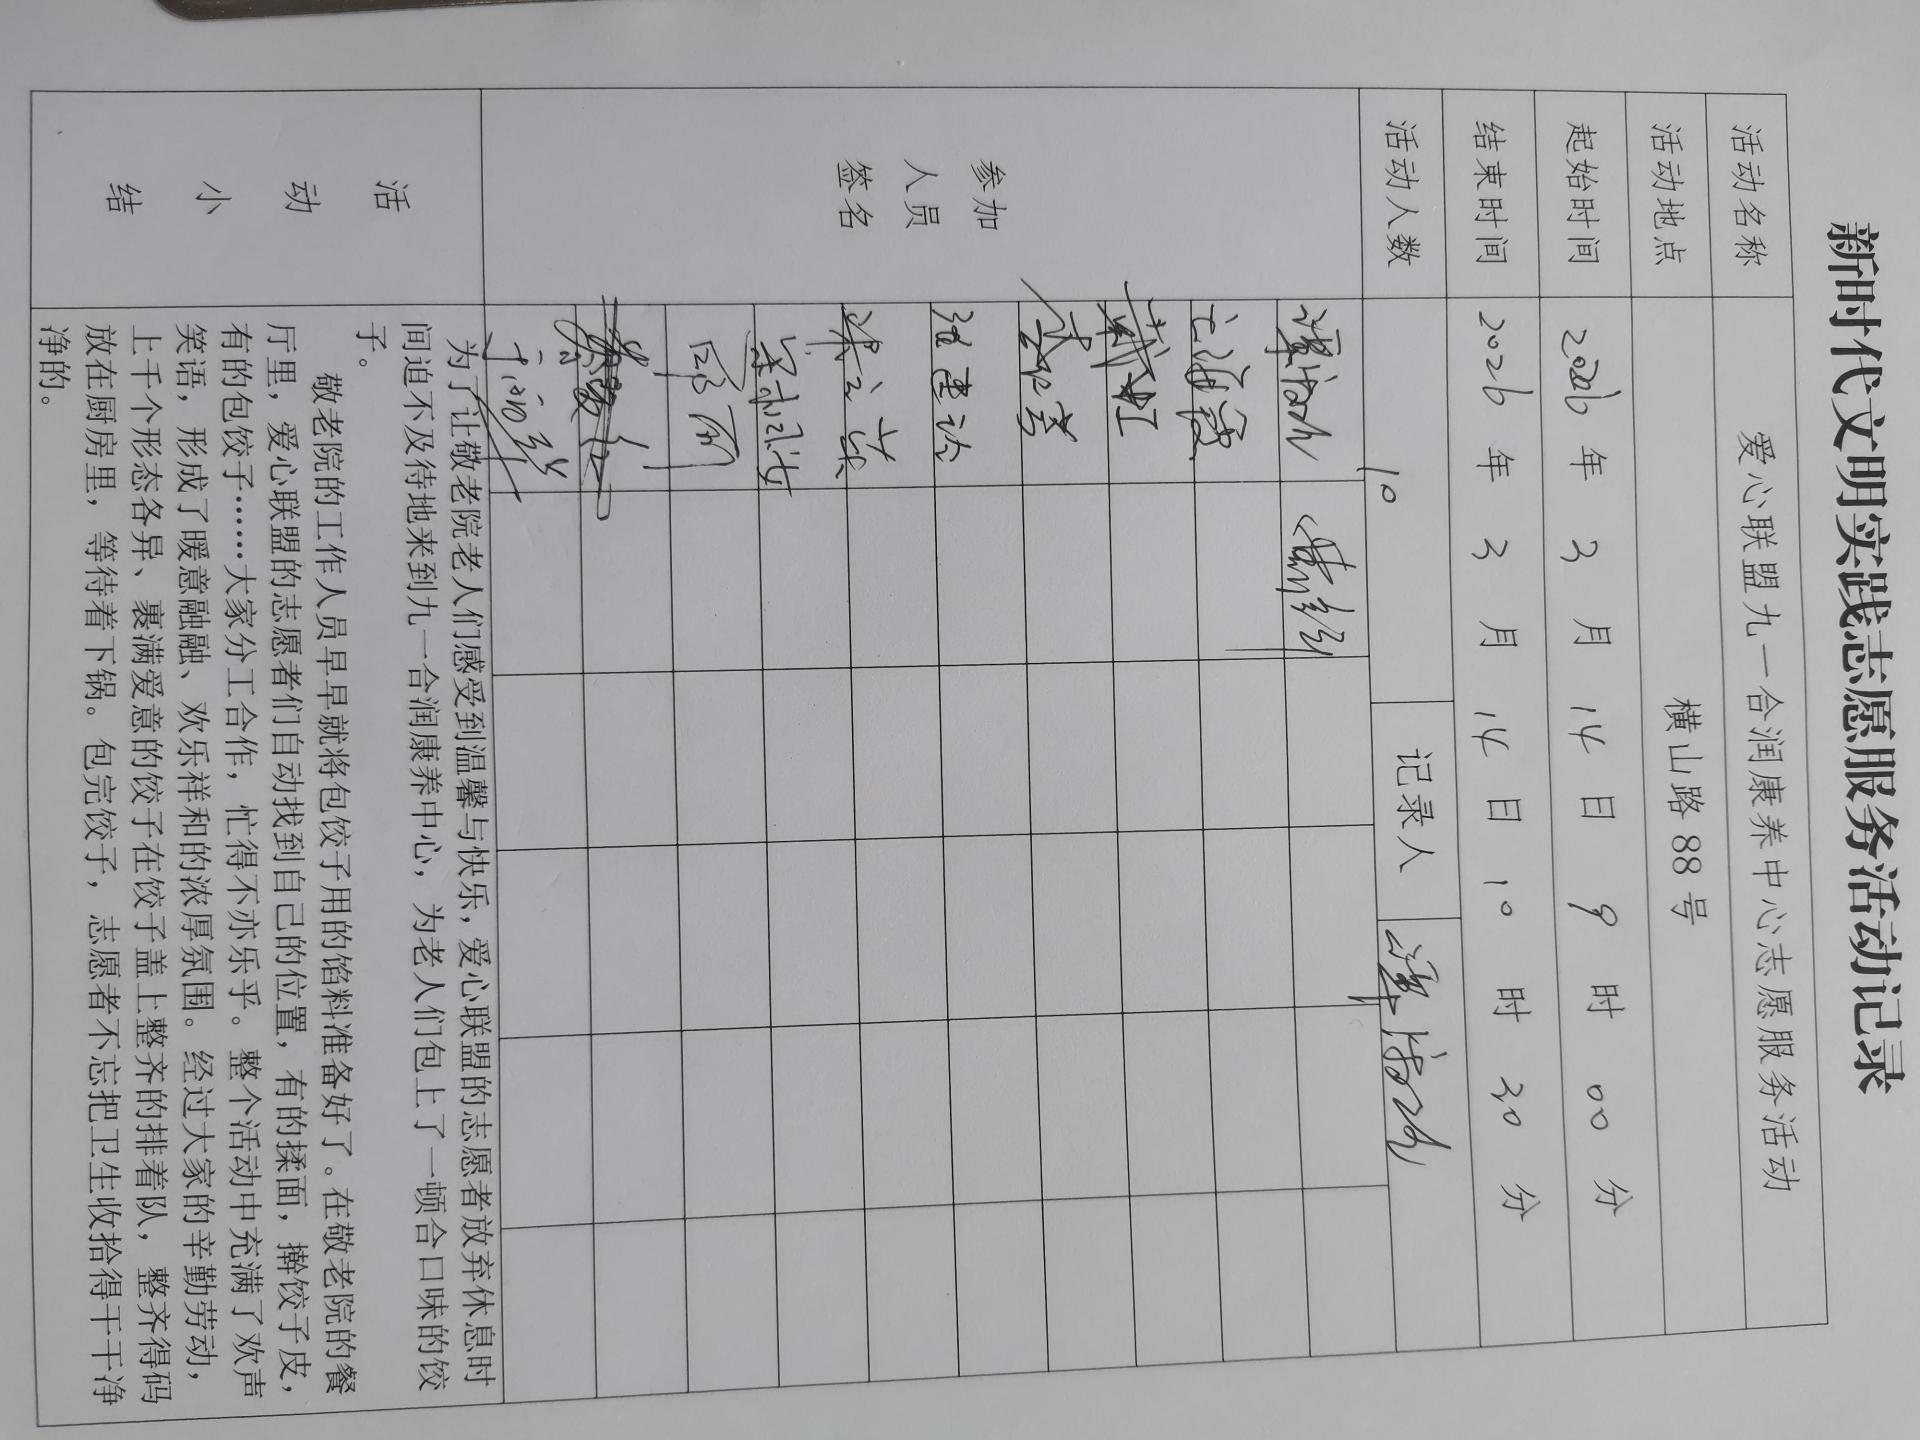 新时代文明实践志愿服务活动记录
活动名称 爱心联盟九一合润康养中心志愿服务活动
活动地点 横山路88号
起始时间 2026年3月14日9时00分
结束时间 2026年3月14日10时30分
活动人数 10 记录人
参加
人员
签名
活
动
小
结
为了让敬老院老人们感受到温馨与快乐，爱心联盟的志愿者放弃休息时
间迫不及待地来到九一合润康养中心，为老人们包上了一顿合口味的饺
子。
敬老院的工作人员早早就将包饺子用的馅料准备好了。在敬老院的餐
厅里，爱心联盟的志愿者们自动找到自己的位置，有的揉面，擀饺子皮，
有的包饺子……大家分工合作，忙得不亦乐乎。整个活动中充满了欢声
笑语，形成了暖意融融、欢乐祥和的浓厚氛围。经过大家的辛勤劳动，
上千个形态各异、裹满爱意的饺子在饺子盖上整齐的排着队，整齐得码
放在厨房里，等待着下锅。包完饺子，志愿者不忘把卫生收拾得干干净
净的。